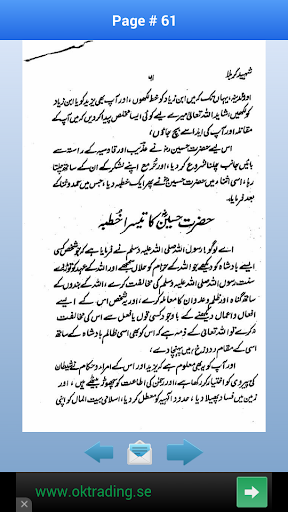 Page # 61
شہید کربلا
۵۱
اور مدینہ، یہاں تک کہ میں ابن زیاد کو خط لکھوں، اور آپ بھی یزید کو یا ابن زیاد
کو لکھیں، شاید اللہ تعالیٰ میرے لیے کوئی ایسا مخلص پیدا کر دیں کہ میں آپ کے
مقاتلہ اور آپ کی ایذا سے بچ جاؤں،
اس لیے حضرت حسین نے عذیب اور قادسیہ کے راستہ سے
بائیں جانب چلنا شروع کر دیا، اور حر مع اپنے لشکر کے ان کے ساتھ چلتا
رہا، اسی اثنا میں حضرت حسین نے پھر ایک خطبہ دیا، جس میں حمد و ثنا کے
بعد فرمایا۔
حضرت حسین کا تیسرا خطبہ
اے لوگو! رسول اللہ صلی اللہ علیہ وسلم نے فرمایا ہے کہ جو شخص کسی
ایسے بادشاہ کو دیکھے جو اللہ کے حرام کو حلال سمجھے اور اللہ کے عہد کو توڑ دے
سنت رسول اللہ صلی اللہ علیہ وسلم کی مخالفت کرے، اللہ کے بندوں کے
ساتھ گناہ اور ظلم و عدوان کا معاملہ کرے، اور یہ شخص اس کے ایسے
افعال و اعمال دیکھنے کے باوجود کسی قول یا فعل سے اس کی مخالفت نہ
کرے، تو اللہ تعالیٰ کے ذمہ ہے کہ اس کو بھی اسی ظالم بادشاہ کے ساتھ
اسی کے مقام (دوزخ) میں پہنچا دے۔
اور آپ کو یہ بھی معلوم ہے کہ یزید اور اس کے امراء و حکام نے شیطان
کی پیروی کو اختیار کر رکھا ہے، اور رحمٰن کی اطاعت کو چھوڑ بیٹھے ہیں، اور
زمین میں فساد پھیلا دیا، حدود الٰہیہ کو معطل کر دیا، اسلامی بیت المال کو اپنی
www.oktrading.se